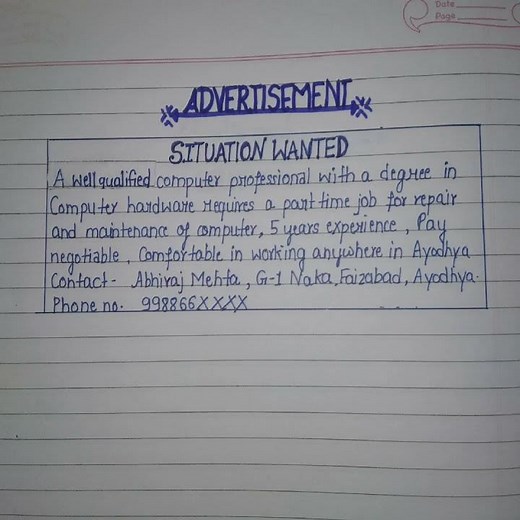 Date
Page
ADVERTISEMENT
SITUATION WANTED
A well qualified computer professional with a degree in
Computer hardware requires a part time job for repair
and maintenance of computer, 5 years experience, Pay
negotiable, Comfortable in working anywhere in Ayodhya
Contact- Abhiraj Mehta, G-1 Naka, Faizabad, Ayodhya.
Phone no. 998866XXXX